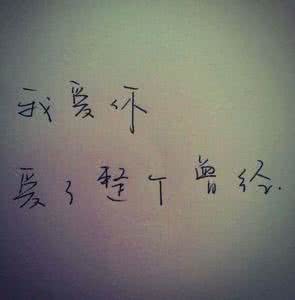 我爱你
爱了整个曾经.